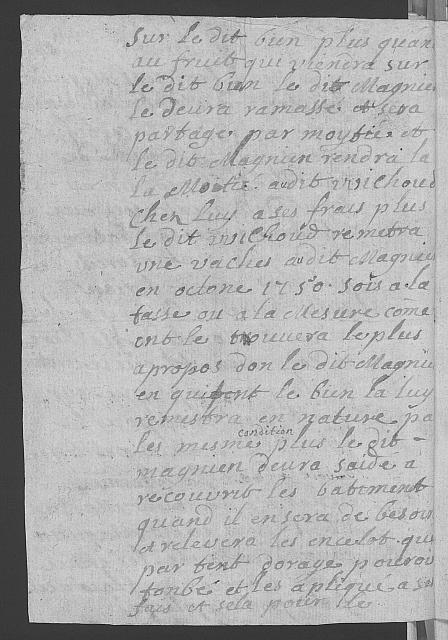 sur le dit bien plus quan
au fruit qui viendra sur
le dit bien le dit Magnien
le devra ramassé et sera
partage par moytié et
le dit Magnien rendra la
la Moitié audit michoud
chen luy a ses frais plus
le dit michoud remetra
une vaches audit Magnien
en octone 1750. sois a la
tasse ou a la Mesure come
ont le trouvera le plus
apropos don le dit Magnien
en quitent le bien la luy
remestra en nature pa
les mesme condition plus le dit
magnien devra saide a
recouvrit les batiment
quand il en sera de besois
et relevera les encelot qui
par tent dorage pourou
tonbé et les apliqué a ses
frais et sela pour le